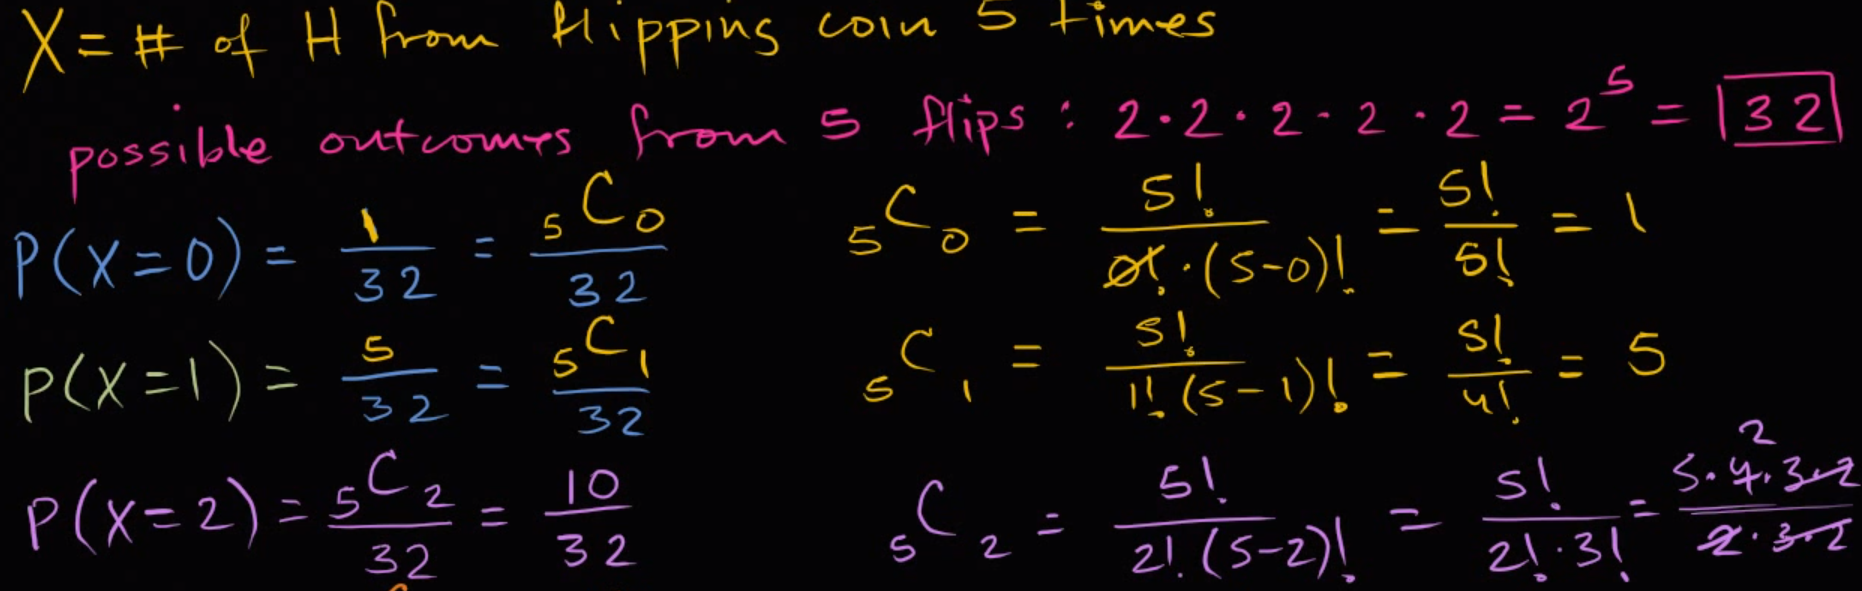 X = # of H from flipping coin 5 times
possible outcomes from 5 flips : 2·2·2·2·2 = 2^5 = 32
P(X=0) = 1/32 = 5C0/32    5C0 = 5!/(0!·(5-0)!) = 5!/5! = 1
P(X=1) = 5/32 = 5C1/32    5C1 = 5!/(1!(5-1)!) = 5!/4! = 5
P(X=2) = 5C2/32 = 10/32    5C2 = 5!/(2!(5-2)!) = 5!/(2!·3!) = 5·4·3·2/(2·3·2) 2